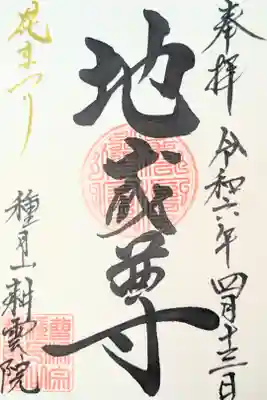 奉拝 令和六年四月十三日
地蔵尊
花まつり
種月山耕雲院